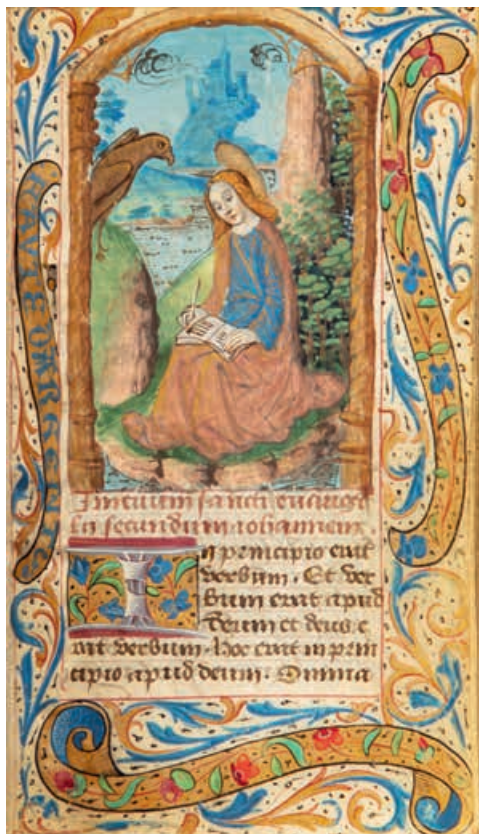 Inicium sancti euangel
ii secundum iohannem.
In principio erat
verbum. Et ver
bum erat apud
deum et deus e
rat verbum. hoc erat in prin
cipio apud deum. Omnia